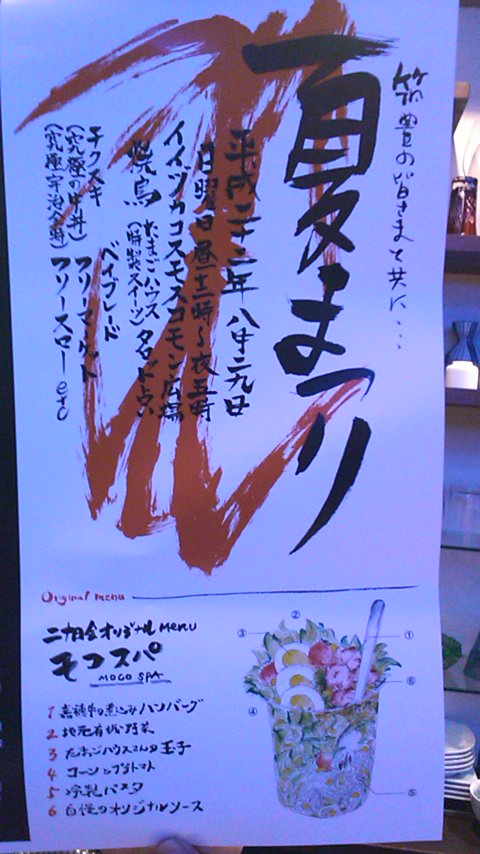 筑豊の皆さまと共に…
夏まつり
平成二十二年 八月二九日
日曜日 昼十二時〜夜五時
イイヅカコスモスコモン広場
焼鳥 たまごハウス(特製スイーツ) タロット占い
ベイブレード
チクスキ フリーマーケット
(究極の牛丼)
(究極宇治金時) フリースロー etc
Original menu
オリジナル menu
モコスパ
MOCO SPA
1 嘉穂牛の煮込みハンバーグ
2 地元有機野菜
3 たまごハウスさんの玉子
4 コーンとプチトマト
5 冷製パスタ
6 自慢のオリジナルソース
②
③
①
⑥
④
⑤